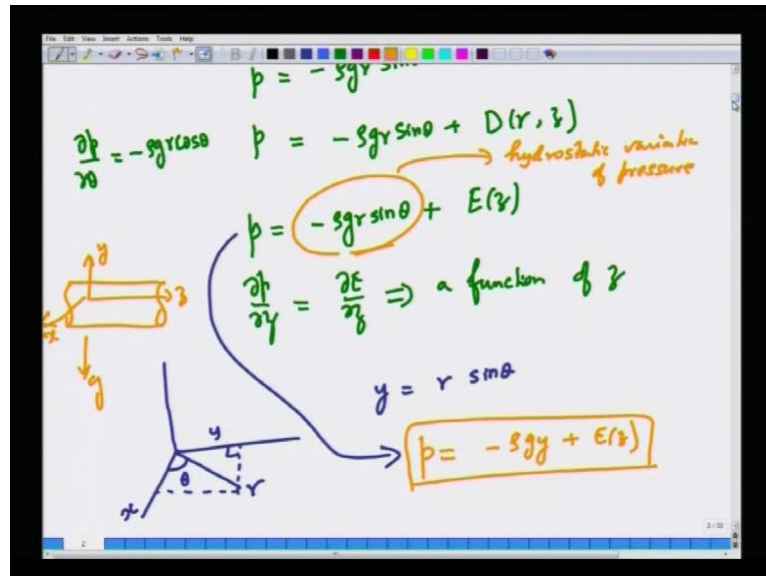 File Edit View Insert Actions Tools Help
p = - ρgr sin
∂p/∂θ = -ρgr cosθ p = - ρgr sinθ + D(r, z)
hydrostatic variatic
of pressure
p = - ρgr sinθ + E(z)
∂p/∂z = ∂E/∂z ⇒ a function of z
y
z
x
g
y = r sinθ
y
θ
r
x
p = - ρgy + E(z)
2 / 33
2